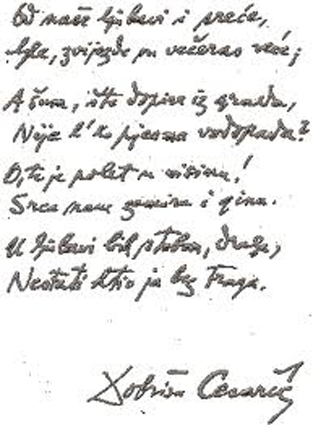 Od naše ljubavi i sreća,
zvijezde su večeras veće;
A šum, što dopire iz grada,
Nije l' to pjesma vodopada?
O, taj polet u visinu!
Srca nam zamiru i ginu.
U ljubavi bih draga,
Nestati htio ja bez traga.
Dobriša Cesarić